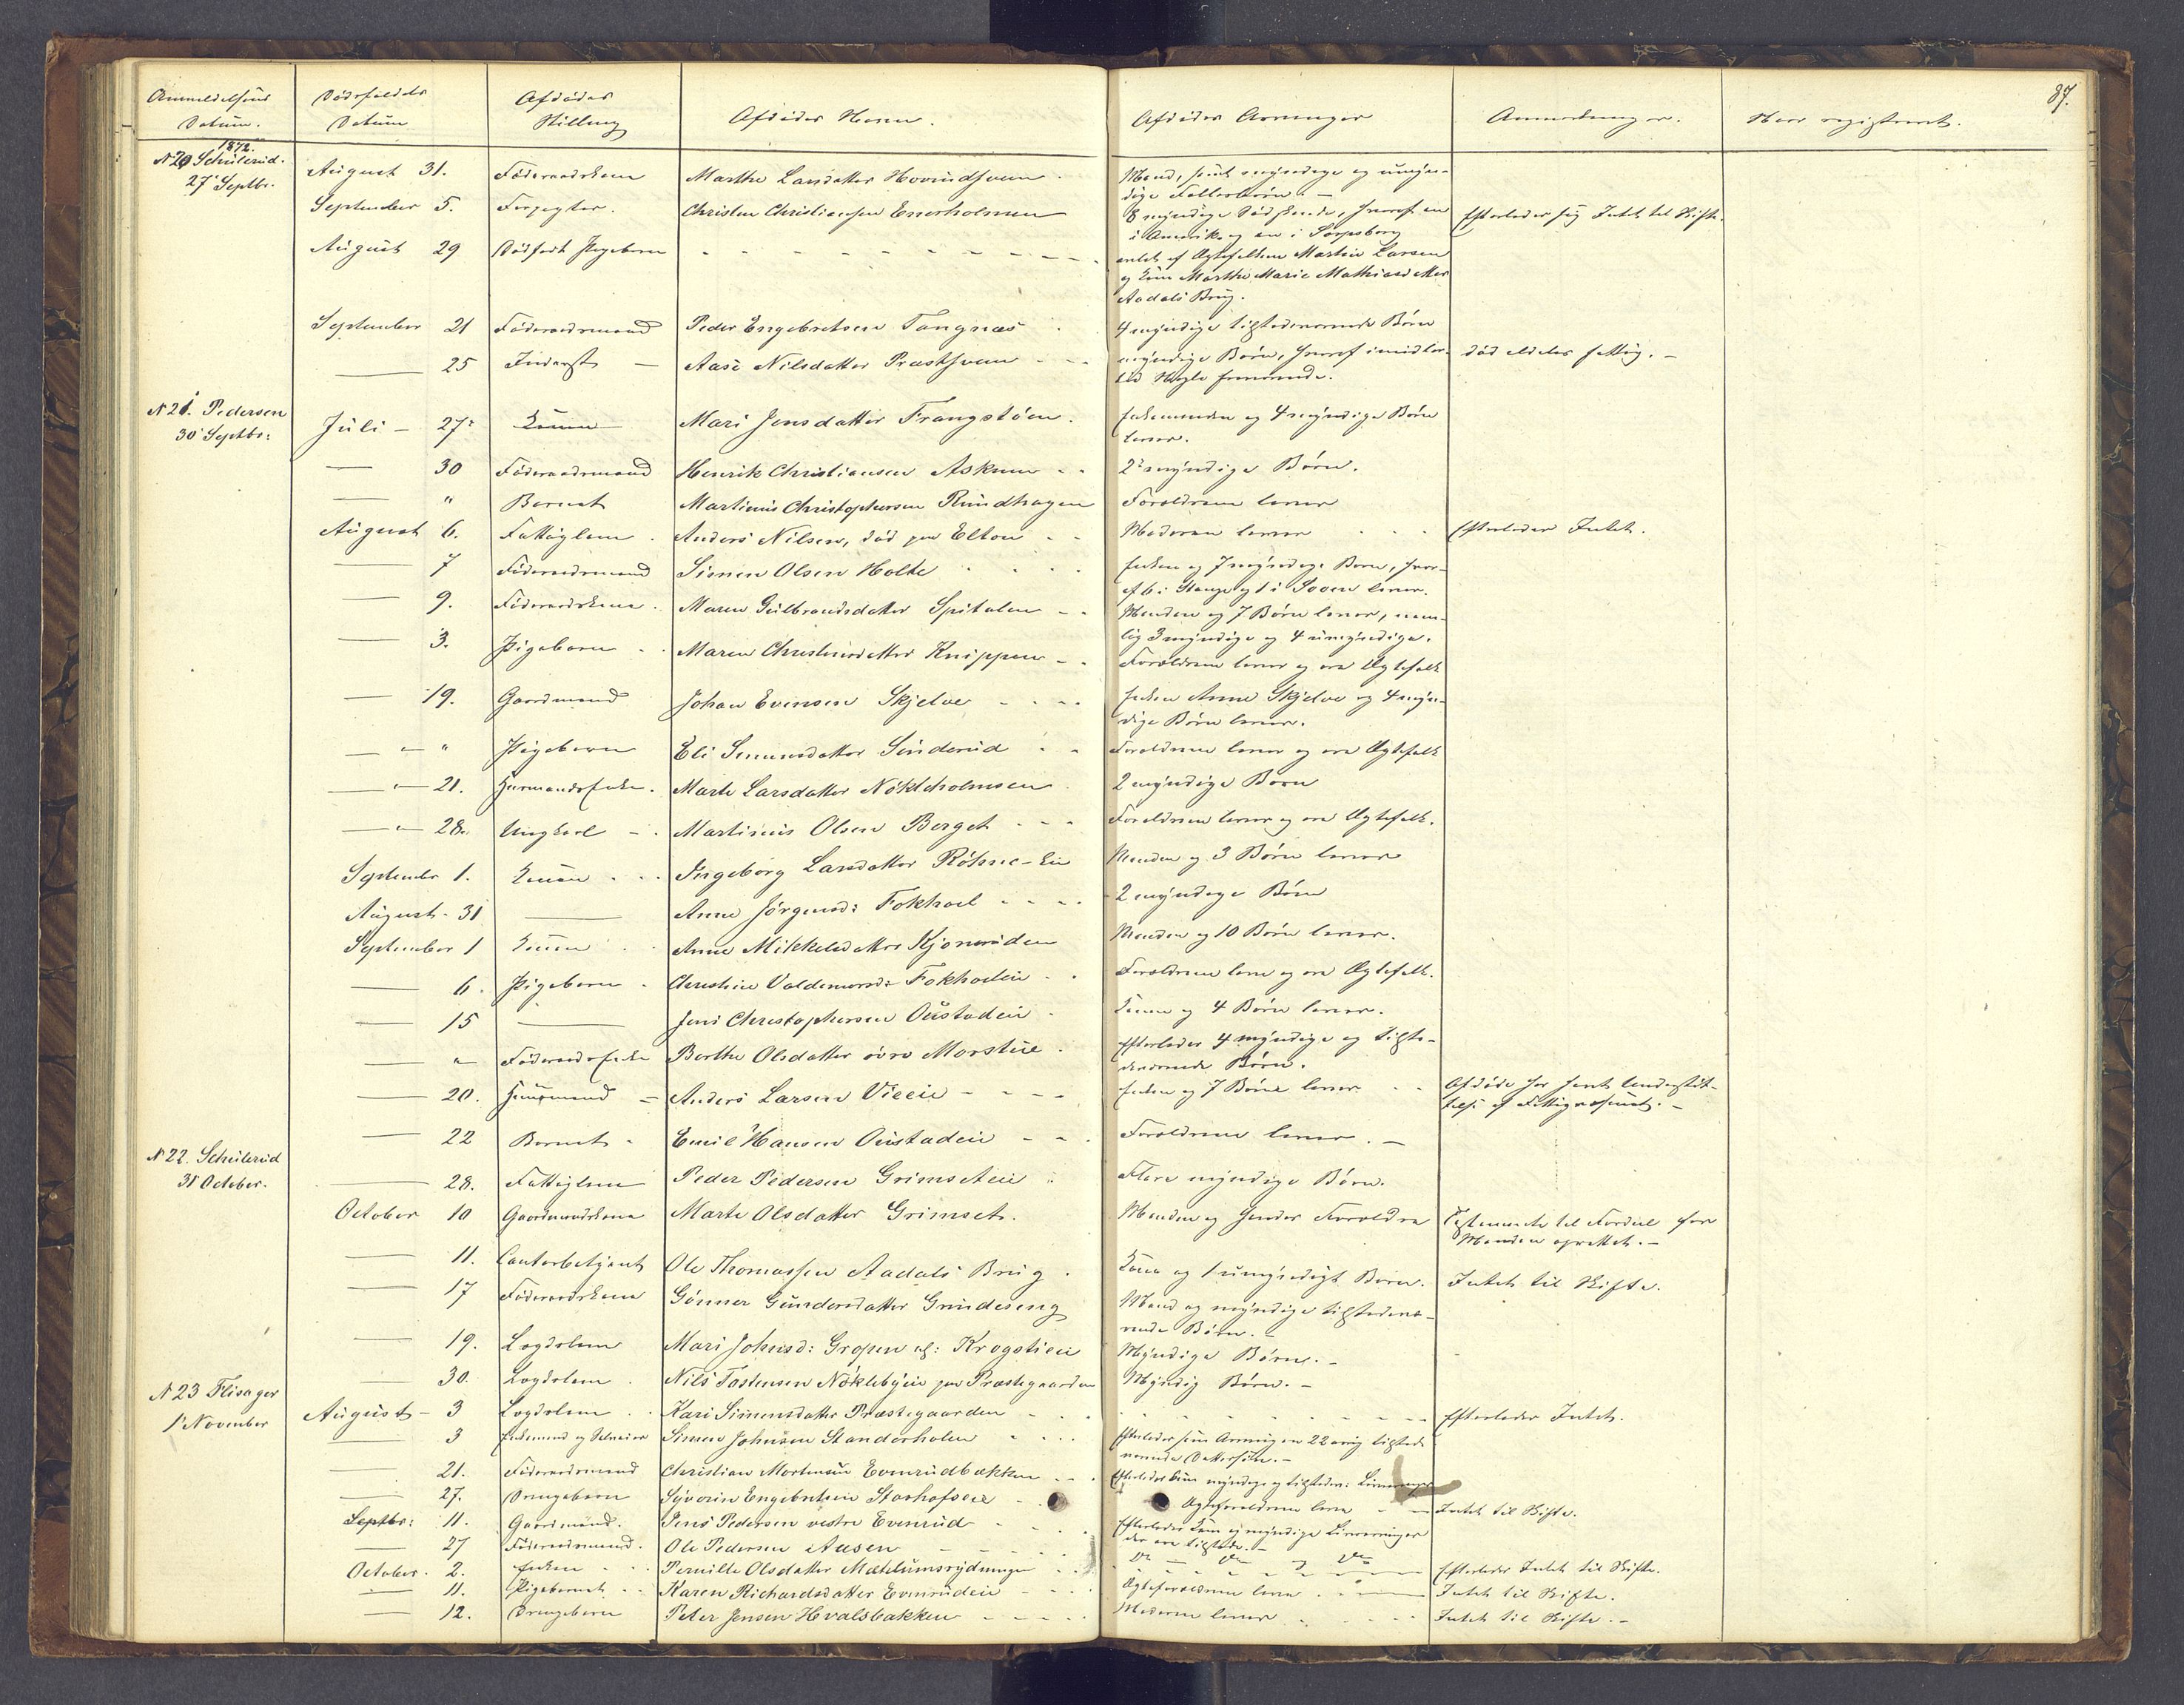 87.
Anmeldelsens Datum. Dødsfaldets Datum Afdødes Stilling Afdødes Navn. Afdødes Arvinger Anmerkninger. Naar registreret.
1872.
N 20 Schülerud. August 31. Föderaadskone Marthe Larsdatter Hovindsveen Mand, samt myndige og umyn-
27 Septbr. dige Fællesbörn. -
September 5. Christen Christiansen Enerholmen 8 myndige Sødskende, hvoraf en Efterlader sig Intet til Skifte.
i Amerika og en i Sarpsborg
August 29 Dødfødt Pigebarn - - - - - - - ægtef af Ægtefolkene Martin Larsen
og Kone Marthe Marie Mathiasdatter
Aadals Brug.
September 21 Föderaadsmand Peder Engebretsen Tangnæs 4 myndige tilstedeværende Börn
25 Inderst Aase Nilsdatter Præstsveen myndige Börn, hvoraf imidler- död aldeles fattig. -
tid Nogle fraværende.
N 21. Pedersen Juli - 27 Kone Mari Jensdatter Frangstöen Enkemanden og 4 myndige Börn
30 Septbr: lever.
30 Föderaadsmand Henrik Christiansen Askum 2 myndige Börn.
" Barnet Martinus Christophersen Rundhagen Forældrene lever
August 6. Fattiglem Anders Nilsen, död paa Elton Moderen lever Efterlader Intet.
7 Föderaadsmand Simen Olsen Holte Enken og 7 myndige Börn, hvor-
af 6 i Stange og 1 i lever.
9. Föderaadskone Maren Gulbrandsdatter Spitalen Manden og 7 Börn lever, nem-
lig 3 myndige og 4 umyndige.
3. Pigebarn Maren Christiansdatter Knippen Forældrene lever og ere Ægtefolk
19. Gaardmand Johan Evensen Skjelve Enken Anne Skjelve og 4 myn-
dige Börn lever.
" Pigebarn Eli Simensdatter Sinderud Forældrene lever og ere Ægtefolk
21. Husmandsenke Marte Larsdatter Nökleholmsen 2 myndige Börn
28. Ungkarl Martinus Olsen Berget Forældrene lever og ere Ægtefolk.
September 1. Konen Ingeborg Larsdatter Röhne-Eie Manden og 3 Börn lever
August 31 Anne Jörgensd: Fokhoel 2 myndige Börn
September 1 Konen Anne Mikkelsdatter Kjonerüden Manden og 10 Börn lever.
6. Pigebarn Christine Valdemarsd: Fokholeie Forældrene lever og ere Ægtefolk.
15 Jens Christophersen Oustadeie Konen og 4 Börn lever.
" Föderaadsenke Berthe Olsdatter övre Morstue Efterlader 4 myndige og tilste-
deværende Börn.
20. Husmand Anders Larsen Enken og 7 Börn lever Afdöde har havt Understöt-
telse af Fattigvæsenet. -
22 Barnet Emil Hansen Oustadeie Forældrene lever. -
N 22. Schülerud 28. Fattiglem Peder Pedersen Grimseteie Flere myndige Börn.
31 October.
October 10 Gaardmandskone Marte Olsdatter Grimset. Manden og hendes Forældre Testamente til Fordeel for
Manden oprettet. -
11. Contorbetjent Ole Thomassen Aadals Brug Kone og 1 umyndigt Barn. Intet til Skifte.
17 Föderaadskone Gönner Gundersdatter Grindeseng Mand og myndige tilstedevæ-
rende Börn. -
19. Logdslem Mari Johnsd: Gropen Krogstieie Myndige Börn. -
30. Logdslem Nils Tostensen Nöklebyeie paa Præstegaarden Myndig Börn. -
N 23 Flisager August - 3 Logdslem Kari Simensdatter Præstegaarden Efterlader Intet.
1 November
3 Enkemand og Simen Johnsen Standerholen Efterlader som Arving en 22 aarig tilstede
værende Dattersön. -
21. Föderaadsmand Christian Mortensen Evenrudbakken Efterlader Kone myndige og tilstedev: Livsarvinger
27. Drengebarn Syverin Engebretsen Starhofseie Ægteforældrene leve Intet til Skifte.
Septbr: 11. Gaardmand. Jens Pedersen vestre Evenrud Efterlader Kone og myndige Livsarvinger
27 Föderaadsmand. Ole Pedersen Aasen der ere tilstede. -
October. 2. Enken Pernille Olsdatter Mæhlumsrydningen Efterlader Intet til Skifte.
11. Pigebarnet Karen Richardsdatter Evenrudeie Ægteforældrene leve Intet til Skifte.
12. Drengebarn Peter Jensen Hvalsbakken Moderen lever Intet til Skifte. -